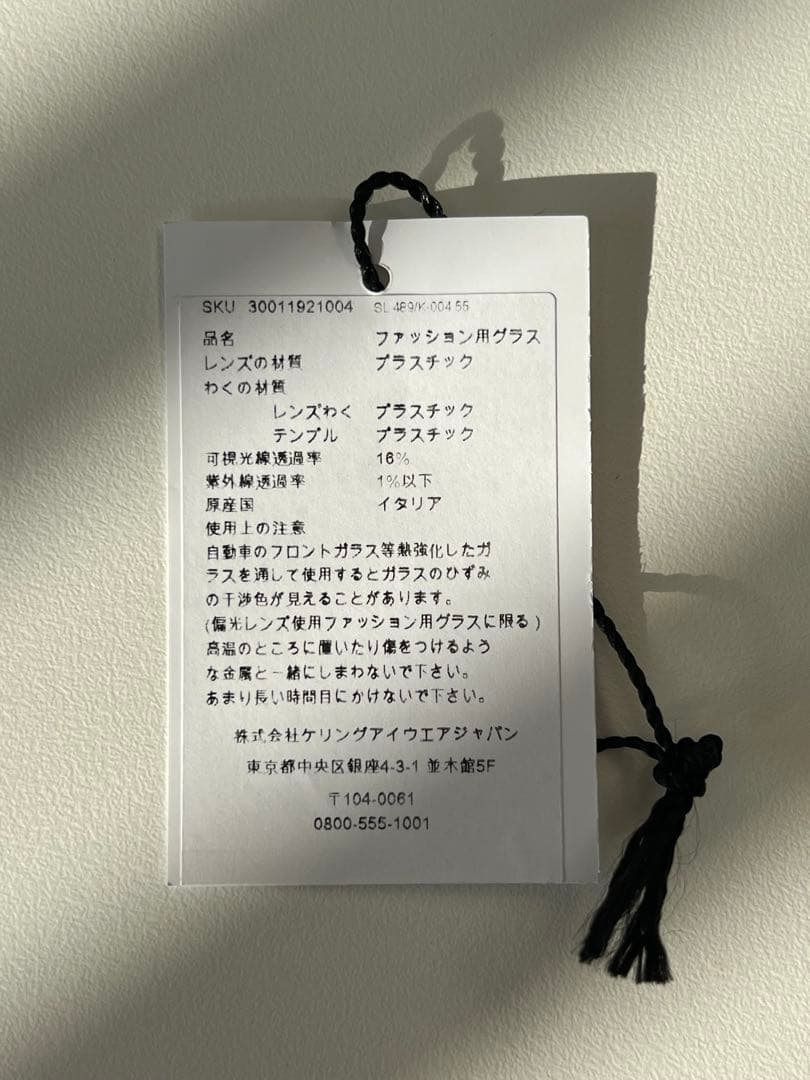 SKU 30011921004 SL 489/K-004 55
品名 ファッション用グラス
レンズの材質 プラスチック
わくの材質
レンズわく プラスチック
テンプル プラスチック
可視光線透過率 16%
紫外線透過率 1%以下
原産国 イタリア
使用上の注意
自動車のフロントガラス等熱強化したガ
ラスを通して使用するとガラスのひずみ
の干渉色が見えることがあります。
(偏光レンズ使用ファッション用グラスに限る)
高温のところに置いたり傷をつけるよう
な金属と一緒にしまわないで下さい。
あまり長い時間目にかけないで下さい。
株式会社ケリングアイウエアジャパン
東京都中央区銀座4-3-1 並木館5F
〒104-0061
0800-555-1001